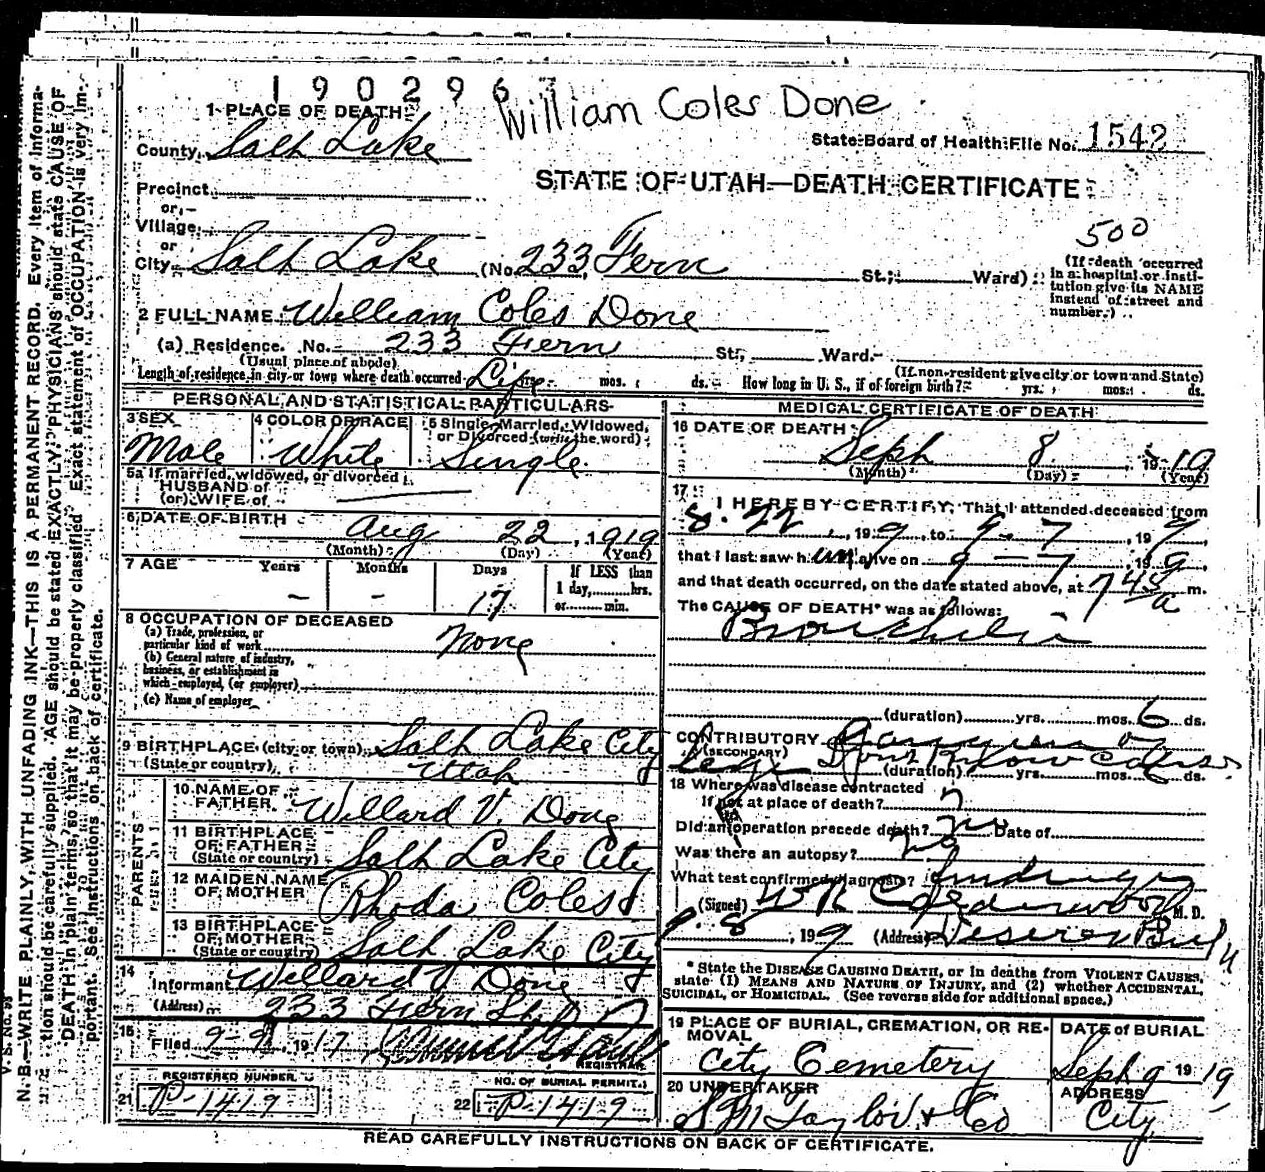 190296
William Coles Done
1 PLACE OF DEATH
County Salt Lake
State Board of Health File No. 1542
STATE OF UTAH—DEATH CERTIFICATE
Precinct
or
Village
or
City Salt Lake (No. 233 Fern St.; Ward)
500
(If death occurred in a hospital or institution give its NAME instead of street and number.)
2 FULL NAME William Coles Done
(a) Residence. No. 233 Fern Str. Ward.
(Usual place of abode) (If non-resident give city or town and State)
Length of residence in city or town where death occurred Life yrs. mos. ds. How long in U. S., if of foreign birth? yrs. mos. ds.
PERSONAL AND STATISTICAL PARTICULARS
3 SEX Male
4 COLOR OR RACE White
5 Single, Married, Widowed, or Divorced (write the word) Single
5a If married, widowed, or divorced
HUSBAND of
(or) WIFE of
6 DATE OF BIRTH Aug 22, 1919
(Month) (Day) (Year)
7 AGE Years Months Days If LESS than 1 day, hrs. or min.
– – 17
8 OCCUPATION OF DECEASED
(a) Trade, profession, or particular kind of work None
(b) General nature of industry, business, or establishment in which employed, (or employer)
(c) Name of employer
9 BIRTHPLACE (city or town) Salt Lake City
(State or country) Utah
PARENTS
10 NAME OF FATHER Willard V. Done
11 BIRTHPLACE OF FATHER (State or country) Salt Lake City
12 MAIDEN NAME OF MOTHER Rhoda Coles
13 BIRTHPLACE OF MOTHER (State or country) Salt Lake City
14 Informant Willard V Done
(Address) 233 Fern St.
15 Filed 9-9, 191
REGISTRAR
REGISTERED NUMBER
21 P-1419
NO. OF BURIAL PERMIT
22 P-1419
MEDICAL CERTIFICATE OF DEATH
16 DATE OF DEATH Sept 8, 1919
(Month) (Day) (Year)
17 I HEREBY CERTIFY, That I attended deceased from
8-22, 199, to 9-7, 199,
that I last saw him alive on 9-7, 199
and that death occurred, on the date stated above, at 7 45 a m.
The CAUSE OF DEATH* was as follows:
Bronchitis
(duration) yrs. mos. 6 ds.
CONTRIBUTORY
(SECONDARY)
(duration) yrs. mos. ds.
18 Where was disease contracted
If not at place of death?
Did an operation precede death? no Date of
Was there an autopsy? no
What test confirmed diagnosis?
(Signed) M. D.
9-8, 199 (Address) Deseret Bk
* State the DISEASE CAUSING DEATH, or in deaths from VIOLENT CAUSES, state (1) MEANS AND NATURE OF INJURY, and (2) whether ACCIDENTAL, SUICIDAL, or HOMICIDAL. (See reverse side for additional space.)
19 PLACE OF BURIAL, CREMATION, OR REMOVAL
City Cemetery
DATE of BURIAL
Sept 9 1919
20 UNDERTAKER
S M Taylor & Co
ADDRESS
City
READ CAREFULLY INSTRUCTIONS ON BACK OF CERTIFICATE.
V. S. No. 98
N. B.—WRITE PLAINLY, WITH UNFADING INK—THIS IS A PERMANENT RECORD. Every item of information should be carefully supplied. AGE should be stated EXACTLY. PHYSICIANS should state CAUSE OF DEATH in plain terms, so that it may be properly classified. Exact statement of OCCUPATION is very important. See instructions on back of certificate.